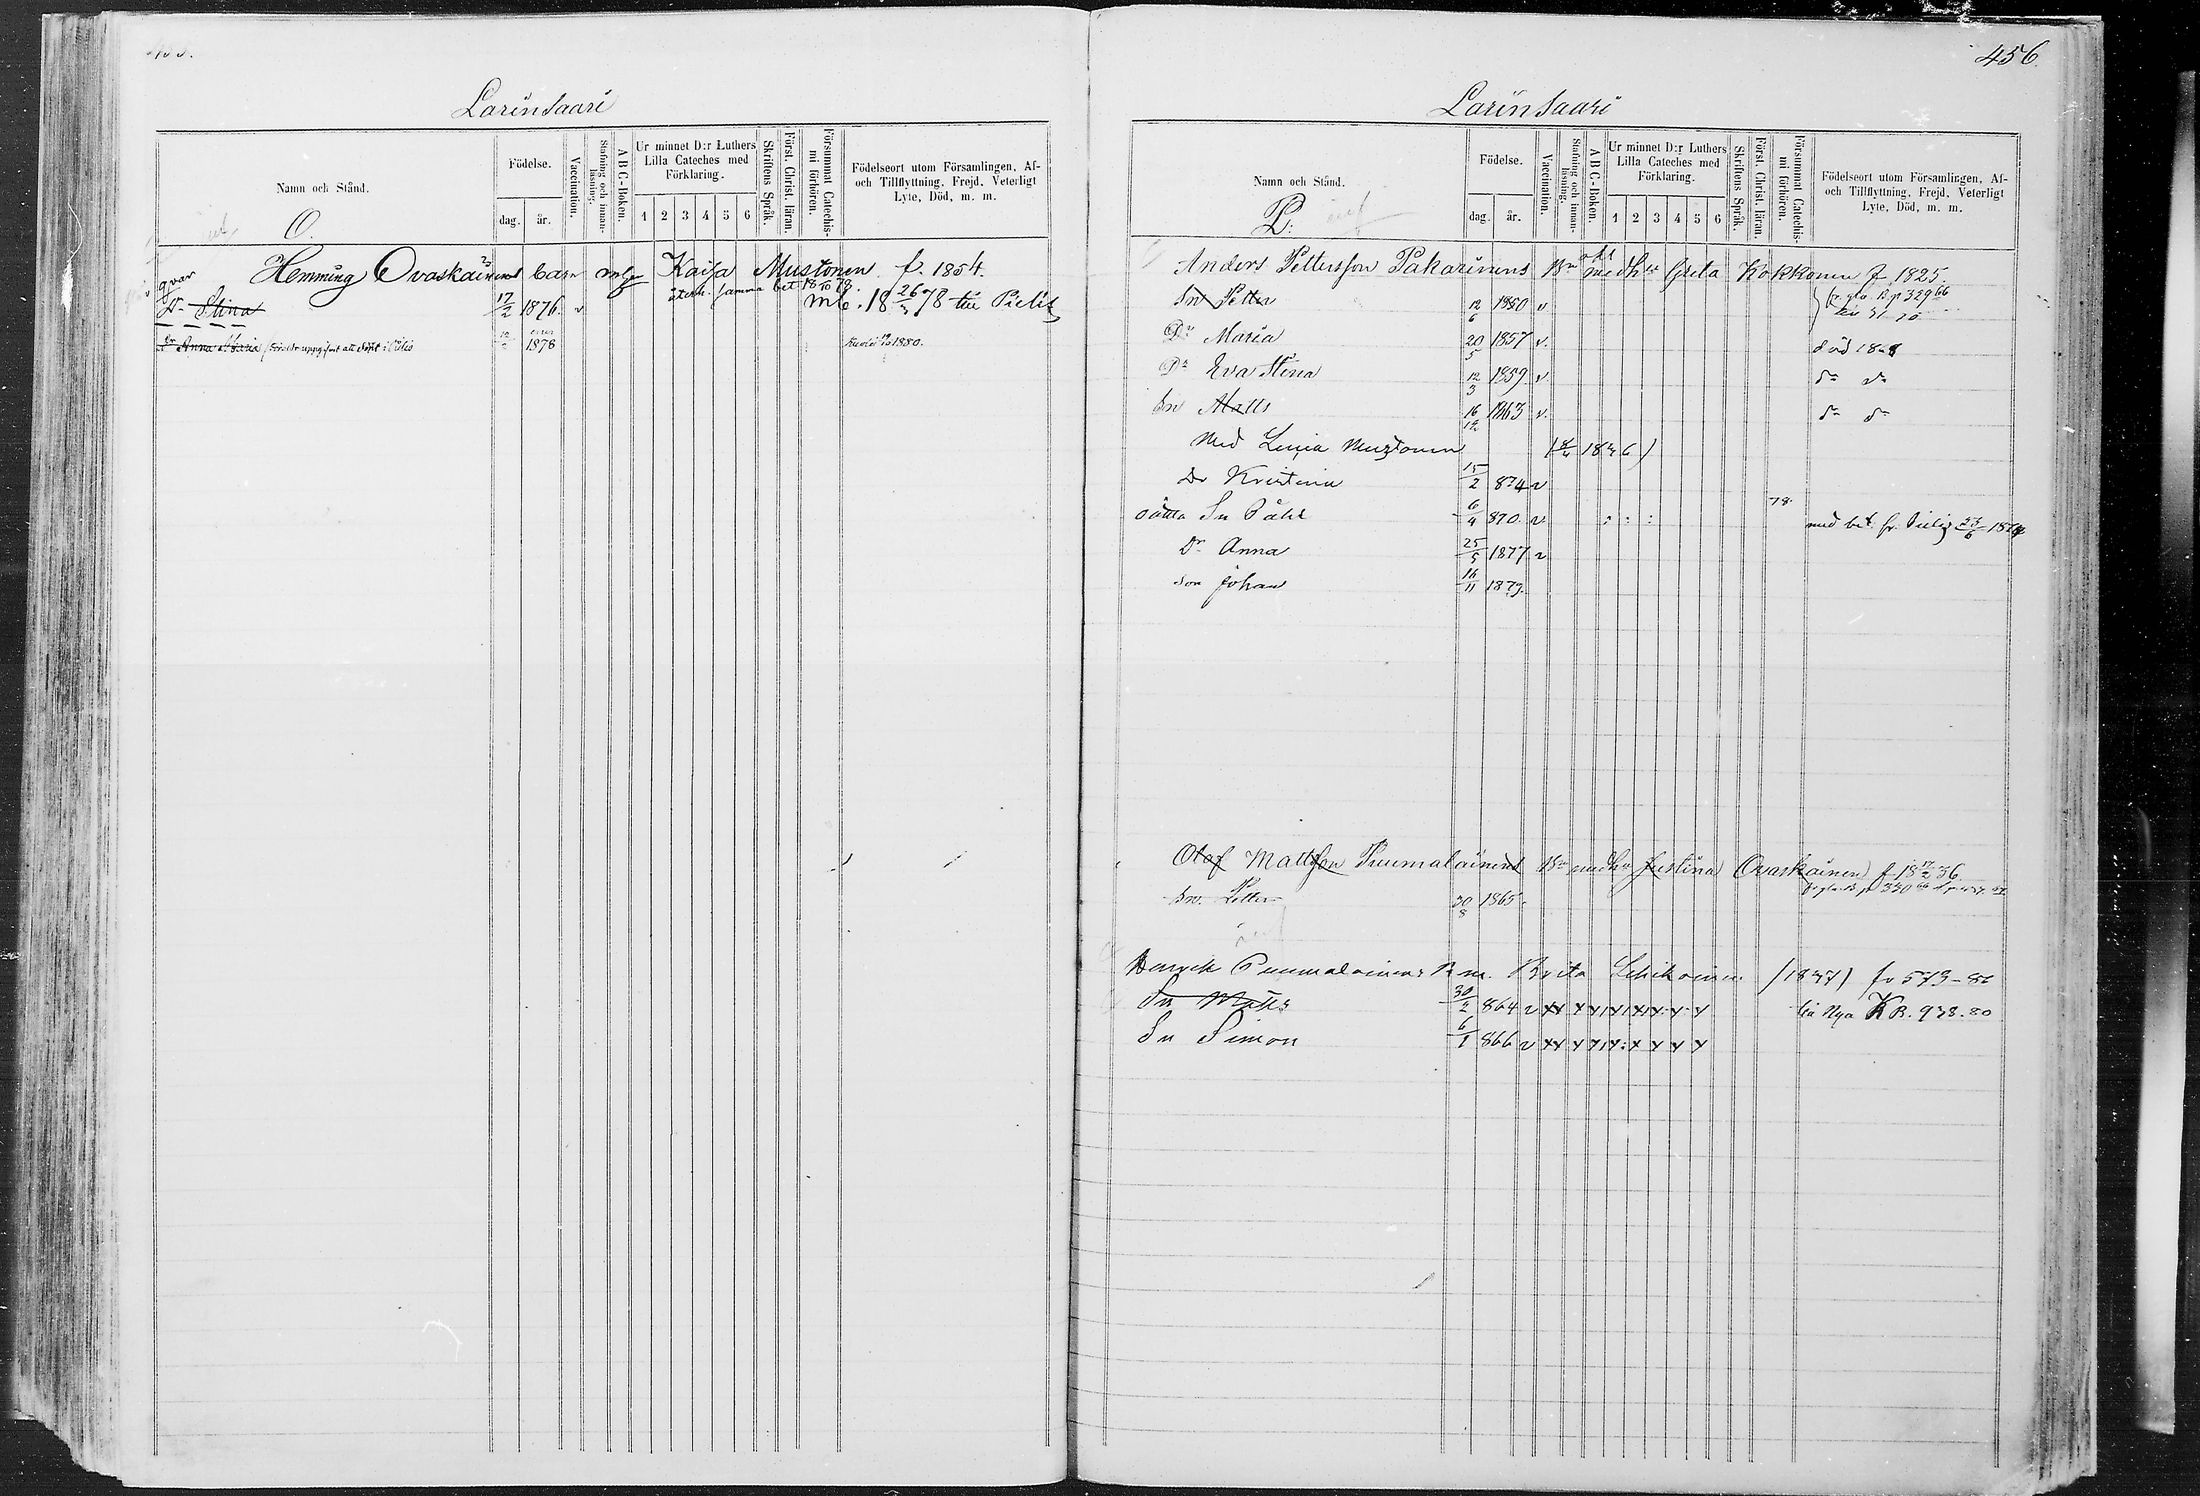 Larinsaari
Namn och Stånd.
O.
Födelse.
dag.
år.
Vaccination.
Stafning och innan-läsning.
A B C-Boken.
Ur minnet D:r Luthers
Lilla Cateches med
Förklaring.
1 2 3 4 5 6
Skriftens Språk.
Först. Christ. läran.
Försummat Catechis-mi förhören.
Födelseort utom Församlingen, Af-
och Tillflyttning, Frejd, Veterligt
Lyte, Död, m. m.
qvar Hemming Ovaskainens barn m Kaisa Mustonen f. 1854.
återk. samma bet 18 78.
Dr Stina 17/2 1876. v mb. 18 26/3 78 till Pielis
Dr Anna Maria 1878 1880.
456.
Larinsaari
Namn och Stånd.
P.
Födelse.
dag.
år.
Vaccination.
Stafning och innan-läsning.
A B C-Boken.
Ur minnet D:r Luthers
Lilla Cateches med
Förklaring.
1 2 3 4 5 6
Skriftens Språk.
Först. Christ. läran.
Försummat Catechis-mi förhören.
Födelseort utom Församlingen, Af-
och Tillflyttning, Frejd, Veterligt
Lyte, Död, m. m.
Anders Pettersson Pakarinens Bn medh Greta Kokkonen f 1825
Sn Petter 12/6 1850 v
Dr Maria 20/5 1857 v. död
Dr Eva Stina 12/3 1859 v
Sn Matts 16/12 1863 v.
Med Lucia Mustonen
Dr Kristina 15/2 874 v
78
oäkta Sn Påhl 6/4 870. v med bet. fr.
Dr Anna 25/5 1877 v
Son Johan 16/11 1879.
Olof Mattsson Puumalainens Bn medh Justina Ovaskainen f 18 17/2 36
Sn. Petter 30/8 1865.
Henrik Puumalainens Bn m. Brita (1837) fr 573-86
Sn Matts 864 v till Nya KB. 938.80
Sn Simon 6/1 866 v